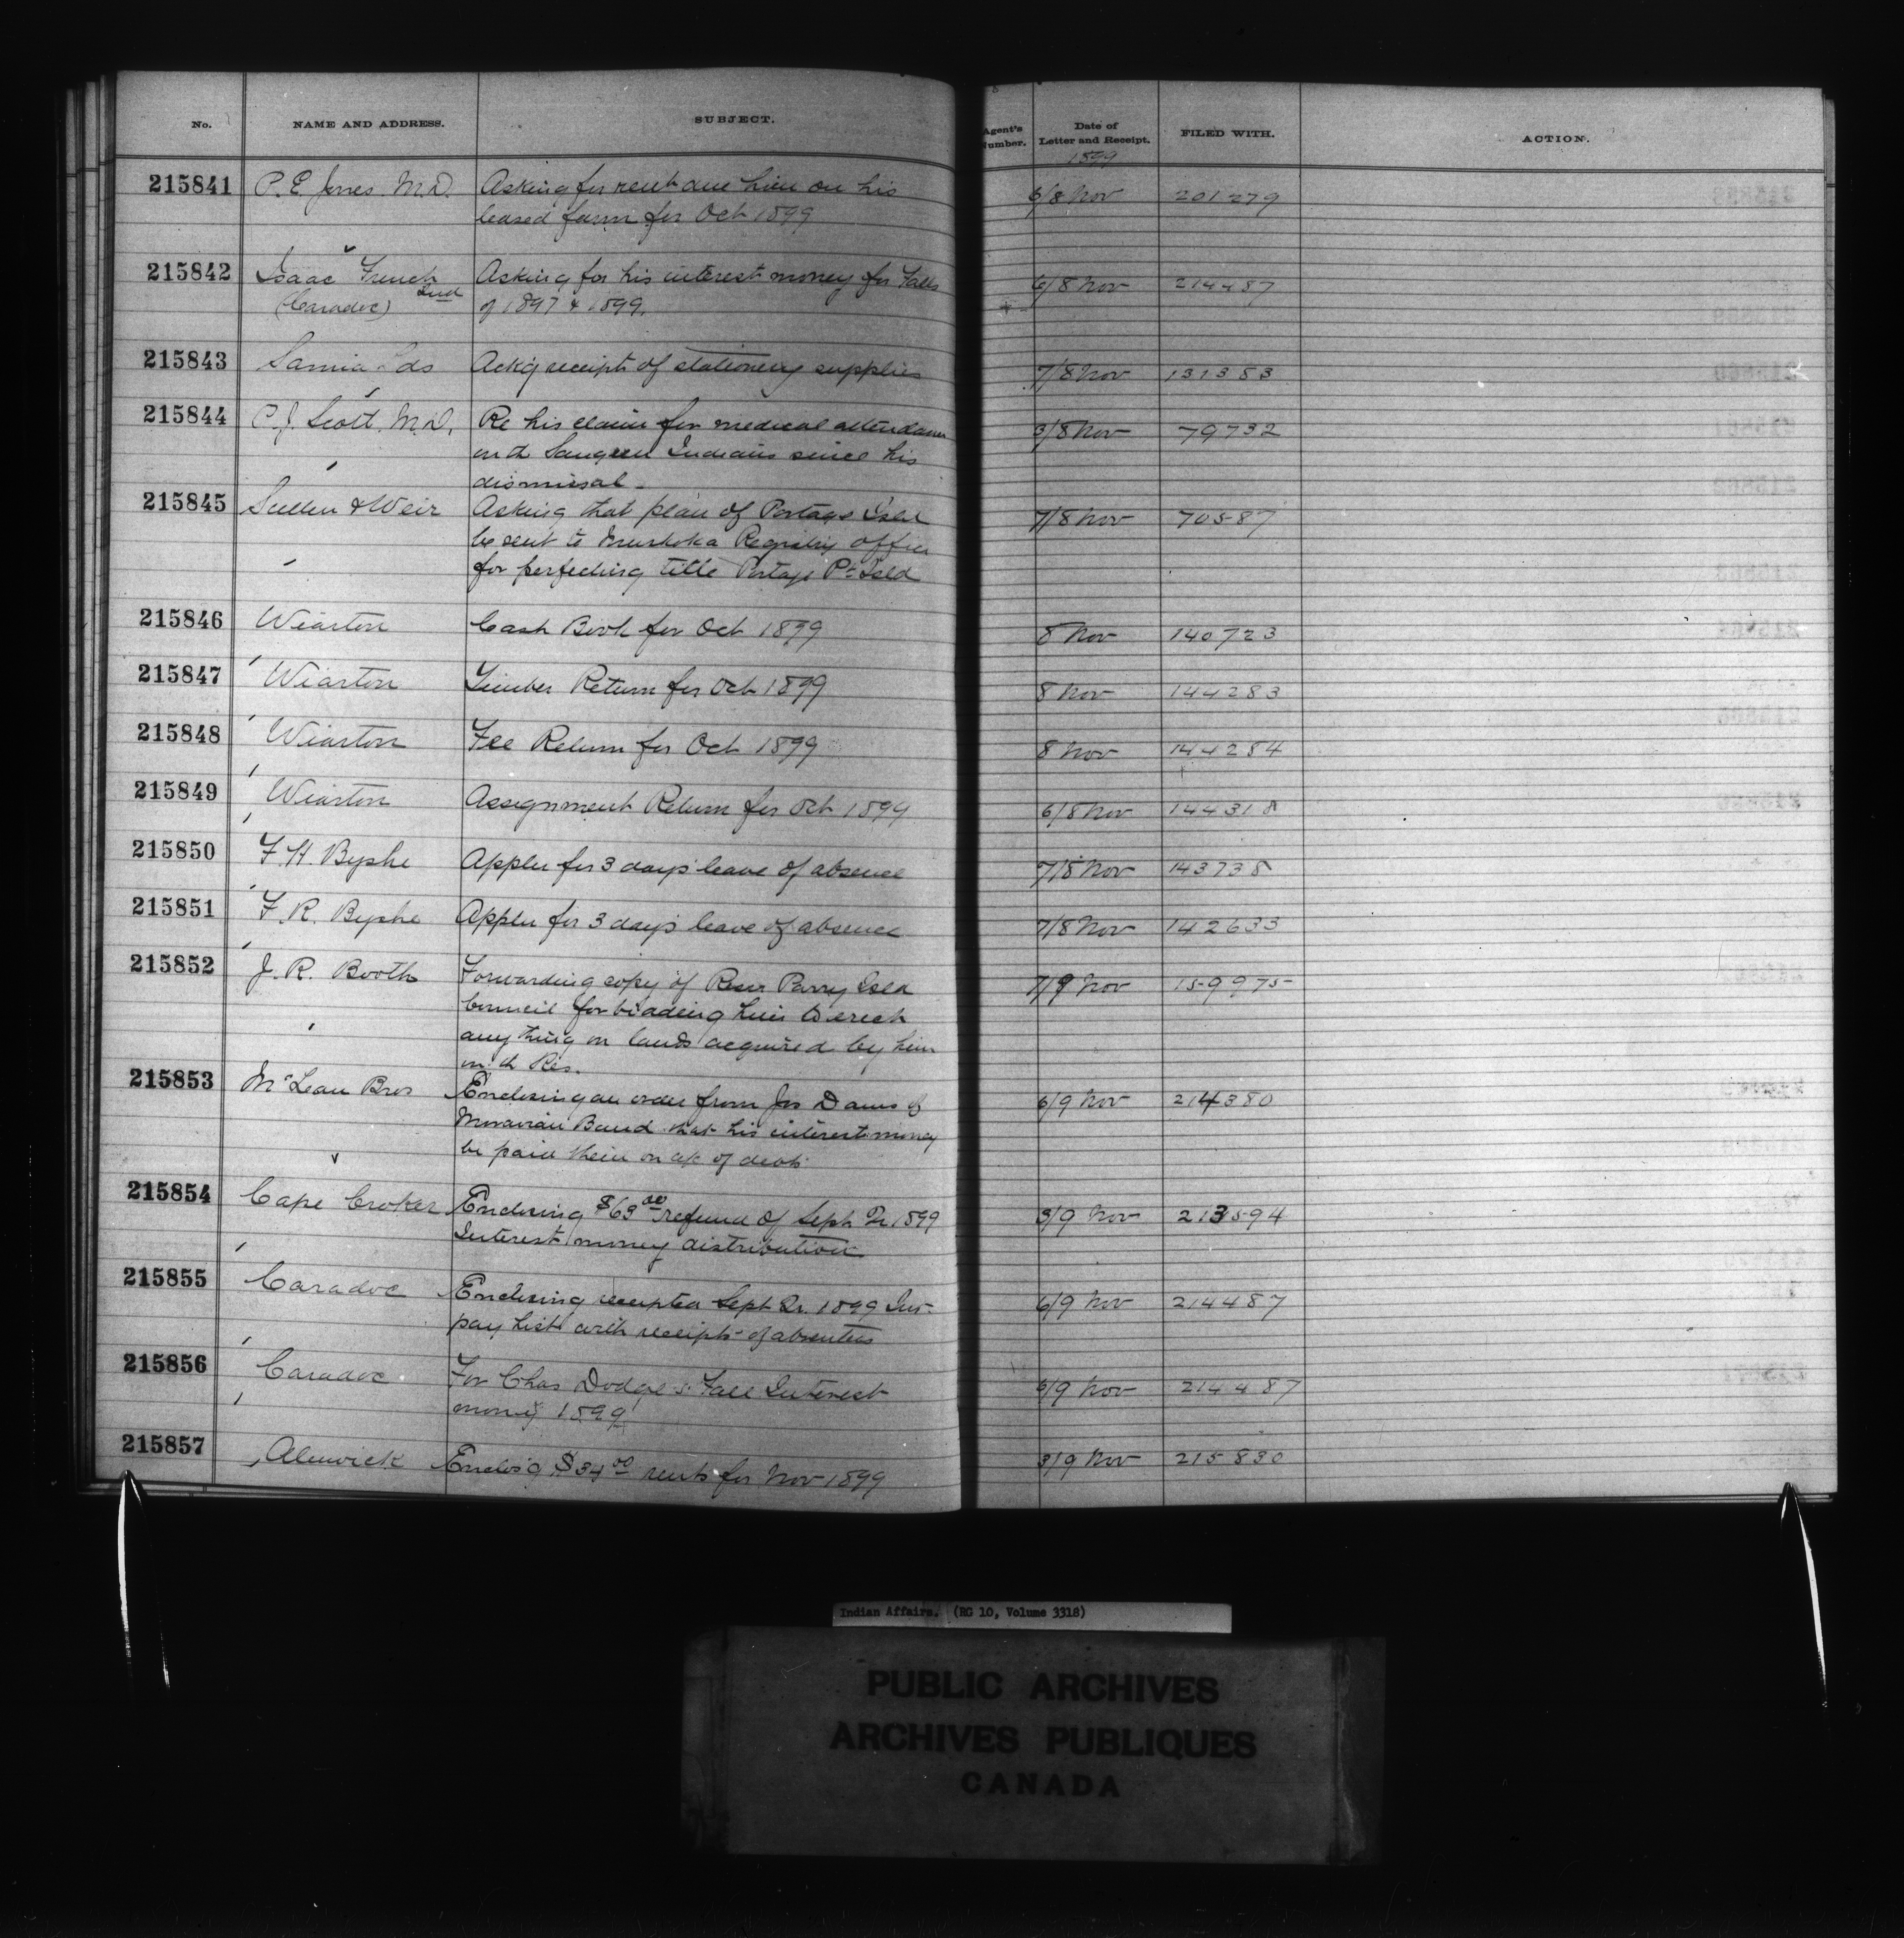 No. NAME AND ADDRESS. SUBJECT. Agent's Number. Date of Letter and Receipt. FILED WITH. ACTION.
1899
215841 P. E. Jones. M.D. Asking for rent due him on his 6/8 Nov 201279
leased farm for Oct 1899
215842 Isaac French 2nd Asking for his interest money for Falls 6/8 Nov 214487
(Caradoc) of 1897 & 1899.
215843 Sarnia Ackg receipt of stationery supplies 7/8 Nov 131383
215844 P. J. Scott. M.D. Re his claim for medical attendance 3/8 Nov 79732
on th Saugeen Indians since his
dismissal.
215845 & Weir Asking that plan of Portage Isld 7/8 Nov 70587
be sent to Muskoka Registry office
for perfecting title Portage Pt Isld
215846 Wiarton Cash Book for Oct 1899 8 Nov 140723
215847 Wiarton Timber Return for Oct 1899 8 Nov 144283
215848 Wiarton Fee Return for Oct 1899 8 Nov 144284
215849 Wiarton Assignment Return for Oct 1899 6/8 Nov 144318
215850 F. H. Byshe Appln for 3 days leave of absence 7/8 Nov 143738
215851 F. R. Byshe Appln for 3 days leave of absence 7/8 Nov 142633
215852 J. R. Booth Forwarding copy of Resn Parry Isld 7/9 Nov 159975
Council forbidding him to erect
anything on lands acquired by him
on th Res.
215853 McLean Bros Enclosing an order from Jos Dams of 6/9 Nov 214380
Moravian Band that his interest money
be paid them on a/c of debt
215854 Cape Croker Enclosing $63.00 refund of Sept Qr 1899 3/9 Nov 213594
Interest money distribution
215855 Caradoc Enclosing receipted Sept Qr. 1899 Int. 6/9 Nov 214487
pay list with receipts of absentees
215856 Caradoc For Chas Dodge's Fall Interest 6/9 Nov 214487
money 1899
215857 Alnwick Enclos'g $34.00 rents for Nov 1899 3/9 Nov 215830
Indian Affairs. (RG 10, Volume 3318)
PUBLIC ARCHIVES
ARCHIVES PUBLIQUES
CANADA